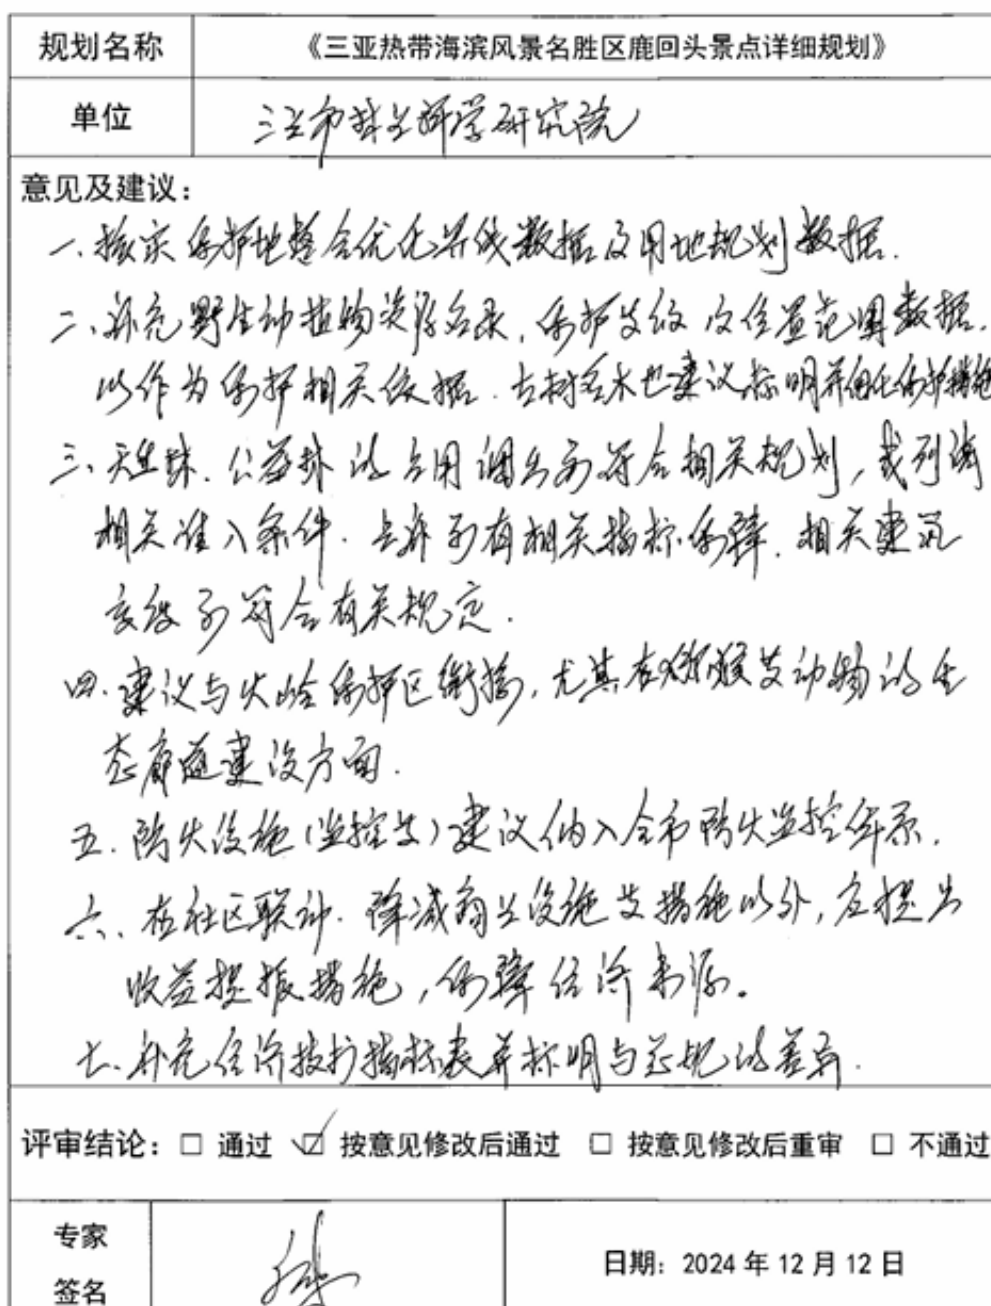 规划名称 《三亚热带海滨风景名胜区鹿回头景点详细规划》
单位 三亚市林业科学研究院
意见及建议：
一、核实保护地整合优化界线数据及用地规划数据.
二、补充野生动植物资源名录，保护等级及位置范围数据，
以作为保护相关依据. 古树名木也建议标明并细化保护措施
三、天然林、公益林的占用调出需符合相关规划，或列清
相关准入条件. 是否有相关指标保障. 相关建筑
等级需符合有关规定.
四、建议与火岭保护区衔接，尤其在猕猴等动物的生
态廊道建设方面.
五、防火设施（监控等）建议纳入全市防火监控体系.
六、在社区联动、降减商业设施等措施以外，应提出
收益提振措施，保障经济来源。
七、补充经济技术指标表并标明与总规的差异.
评审结论：□ 通过 ☑ 按意见修改后通过 □ 按意见修改后重审 □ 不通过
专家
签名
日期：2024 年 12 月 12 日